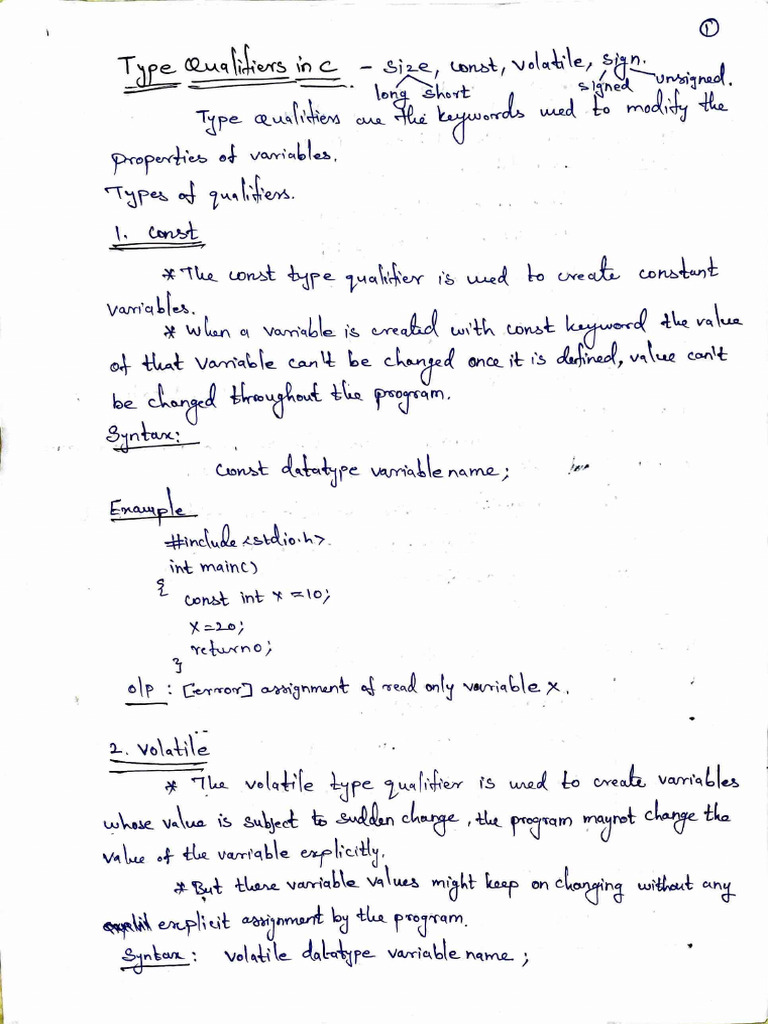 1
Type Qualifiers in C - size, const, volatile, sign.
long short signed unsigned.
Type Qualifiers are the keywords used to modify the
properties of variables.
Types of qualifiers.
1. Const
* The const type qualifier is used to create constant
variables.
* When a variable is created with const keyword the value
of that variable can't be changed once it is defined, value can't
be changed throughout the program.
Syntax:
Const datatype variable name;
Example
#include <stdio.h>
int main()
{
const int x = 10;
x=20;
return 0;
}
o/p : [error] assignment of read only variable x.
2. Volatile
* The volatile type qualifier is used to create variables
whose value is subject to sudden change, the program maynot change the
value of the variable explicitly.
* But these variable values might keep on changing without any
explicit assignment by the program.
Syntax: volatile datatype variable name;